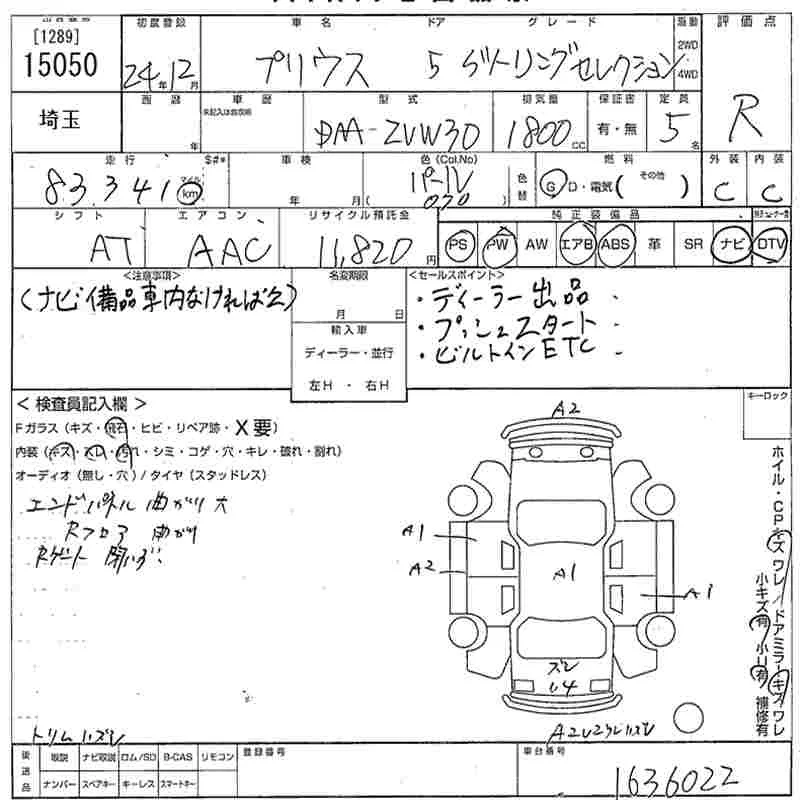 [1289]
15050
初度登録
24年12月
車名
プリウス
ドア
5
グレード
Gツーリングセレクション
駆動
2WD
4WD
評価点
R
埼玉
西暦
年
車歴
未記入は自家用
型式
DAA-ZVW30
排気量
1800cc
保証書
有・無
定員
5名
走行
83,341
マイル
km
$#*
車検
年 月(
色(Col.No)
パール
070
)
色替
燃料
G D・電気( その他 )
外装
C
内装
C
シフト
AT
エアコン
AAC
リサイクル預託金
11,820円
純正装備品
PS PW AW エアB ABS 革 SR ナビ DTV
<注意事項>
(ナビ備品車内なければ欠)
名変期限
月 日
輸入車
ディーラー・並行
左H ・ 右H
<セールスポイント>
・ディーラー出品
・プッシュスタート
・ビルトインETC
キーロック
< 検査員記入欄 >
Fガラス(キズ・飛石・ヒビ・リペア跡・X要)
内装(キズ・スレ・汚れ・シミ・コゲ・穴・キレ・破れ・割れ)
オーディオ(無し・穴)/タイヤ(スタッドレス)
エンドパネル 曲がり大
Rフロア 曲がり
Rゲート
A2
A1
A2
A1
A1
ズレ
U4
ホイル・CPキズ ワレ/ドアミラーキズ ワレ
小キズ有 小U有 補修有
トリムハズレ
後送品
取説 ナビ取説 ロム/SD B-CAS リモコン
ナンバー スペアキー キーレス スマートキー
登録番号
車台番号
1636022